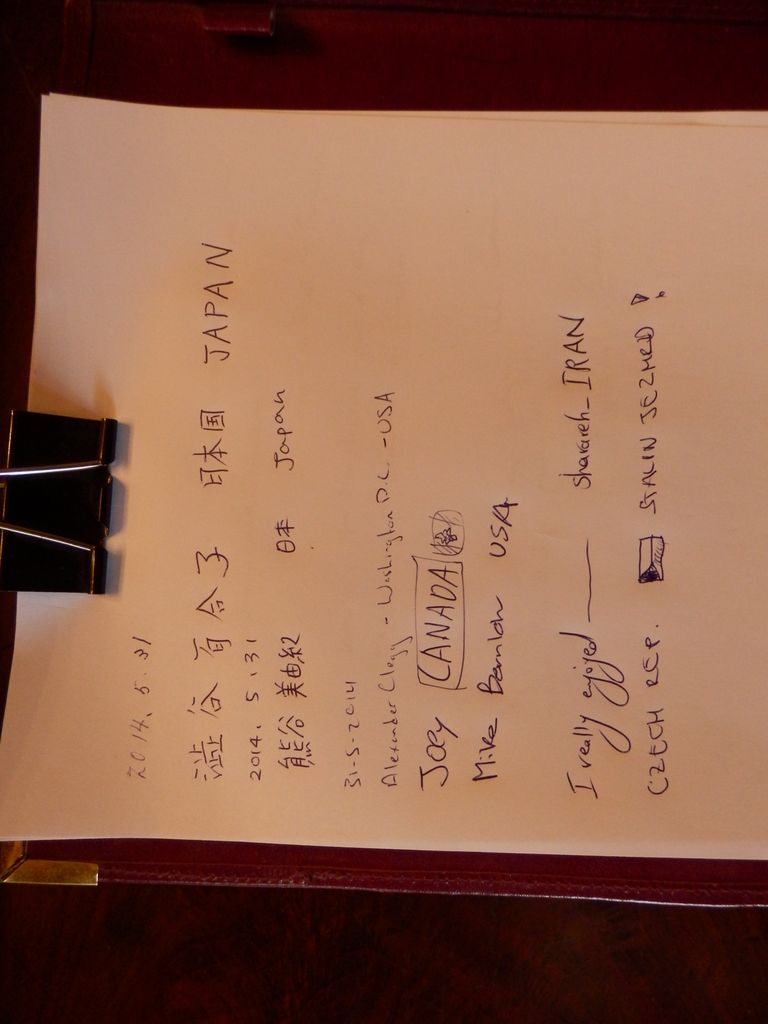 2014. 5. 31
澁谷百合子 日本国 JAPAN
2014. 5. 31
熊谷美由紀 日本 Japan
31-5-2014
Alexander Clegg - Washington D.C. - USA
Joey CANADA
Mike USA
I really enjoyed — sharareh_IRAN
CZECH REP. STALIN JEZHED!